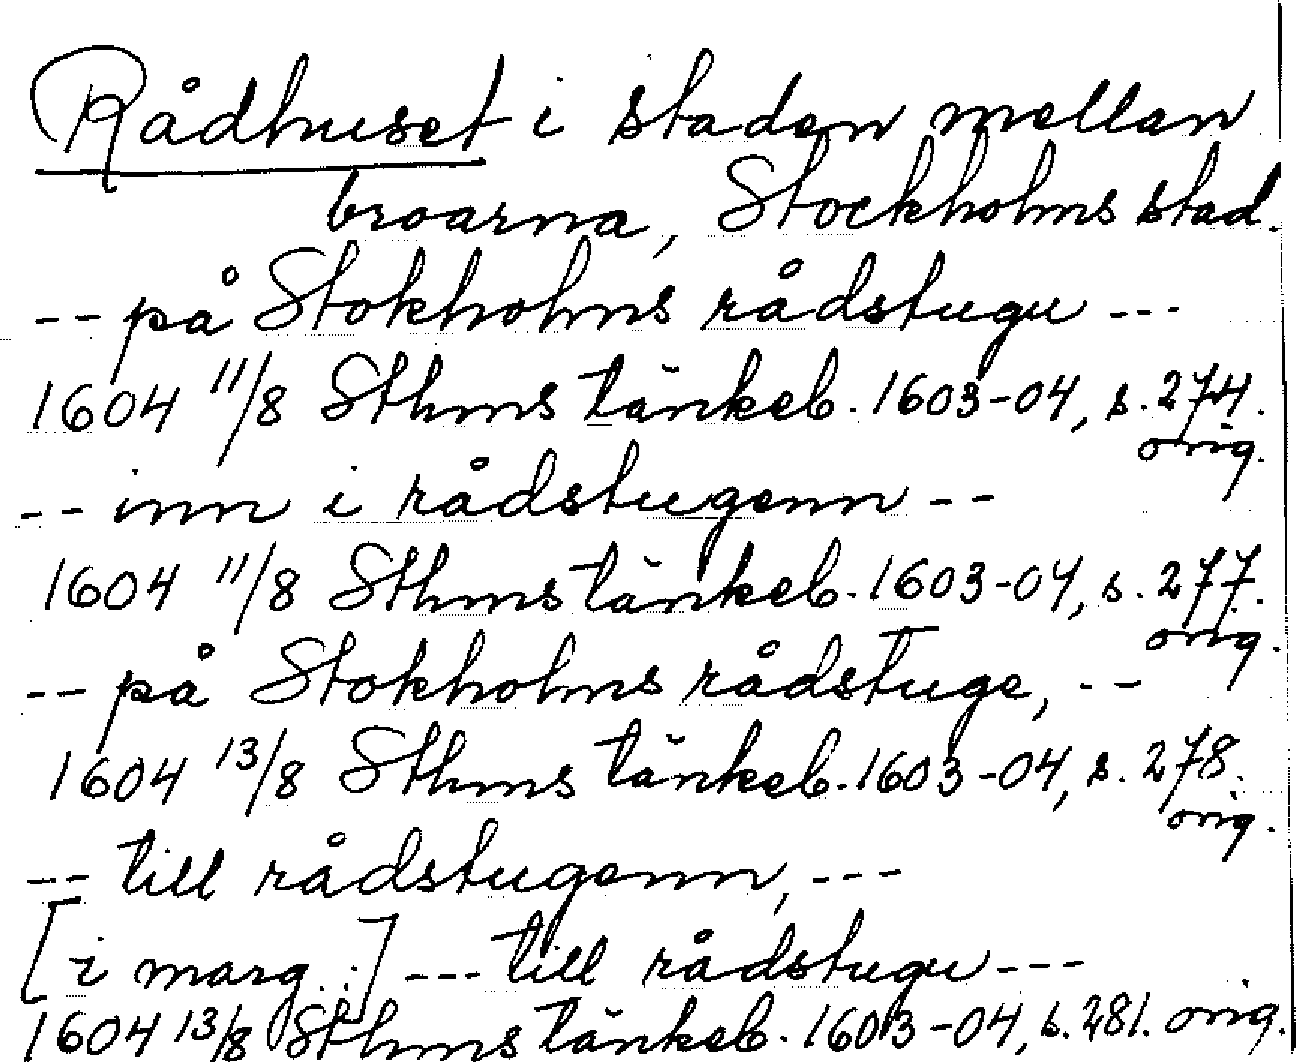 Rådhuset i staden mellan
broarna, Stockholms stad.
-- på Stokholms rådstugu ---
1604 11/8 Sthms tänkeb. 1603-04, s. 274.
orig.
-- inn i rådstugenn --
1604 11/8 Sthms tänkeb. 1603-04, s. 277.
orig.
-- på Stokholms rådstuge, --
1604 13/8 Sthms tänkeb. 1603-04, s. 278.
orig.
-- till rådstugenn, ---
[i marg.:] --- till rådstugu ---
1604 13/8 Sthms tänkeb. 1603-04, s. 281. orig.